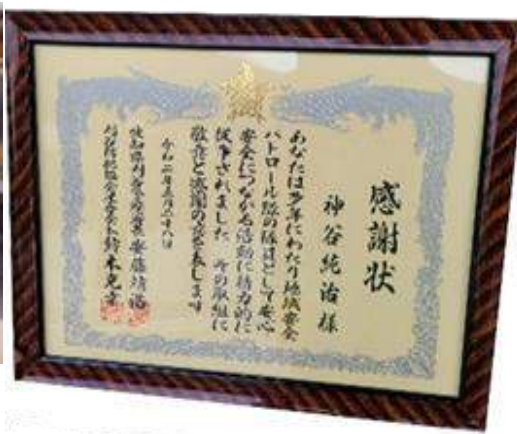 感謝状
神谷純治様
あなたは多年にわたり地域安全
パトロール隊の隊員として安心
安全につながる活動に精力的に
従事されました その取組に
敬意と感謝の意を表します
令和二年